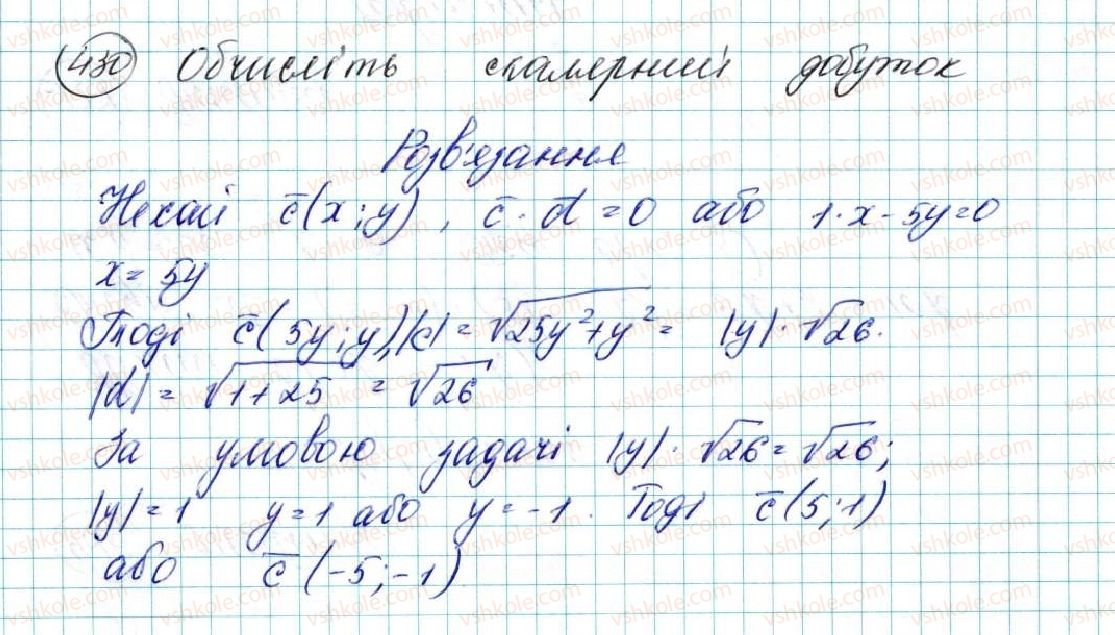 430 Обчисліть скалярний добуток
Розв'язання
Нехай c̄(x; y), c̄ · d̄ = 0 або 1·x - 5y = 0
x = 5y
Тоді c̄(5y; y), |c| = √(25y² + y²) = |y| · √26.
|d| = √(1 + 25) = √26
За умовою задачі |y| · √26 = √26;
|y| = 1 y = 1 або y = -1. Тоді c̄(5; 1)
або c̄(-5; -1)